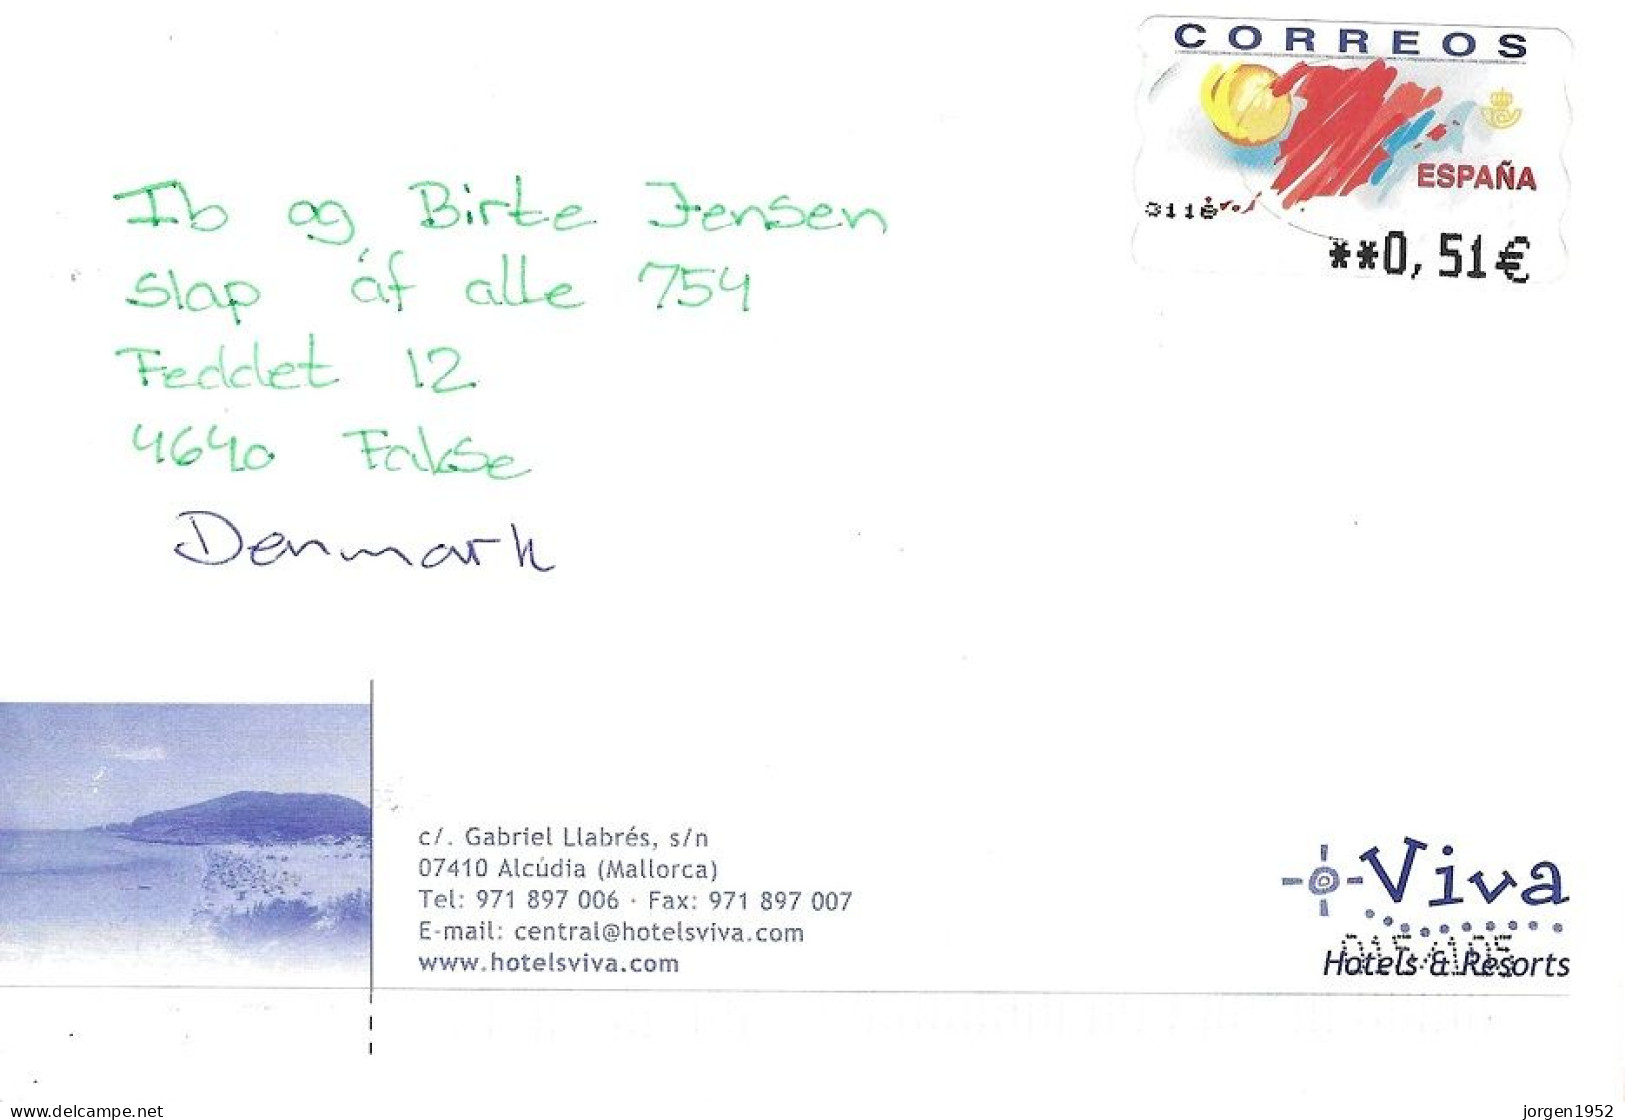 CORREOS
ESPAÑA
**0,51€
Ib og Birte Jensen
Slap áf alle 754
Feddet 12
4640 Fakse
Denmark
c/. Gabriel Llabrés, s/n
07410 Alcúdia (Mallorca)
Tel: 971 897 006 · Fax: 971 897 007
E-mail: central@hotelsviva.com
www.hotelsviva.com
Viva
Hotels & Resorts
delcampe.net
jorgen1952